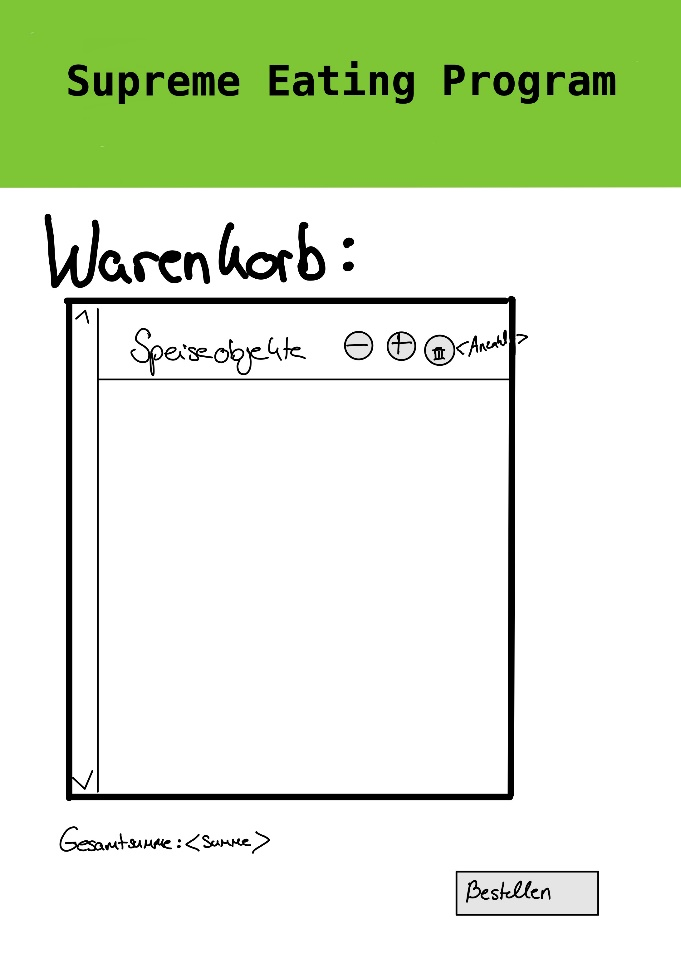 Supreme Eating Program
Warenkorb:
Speiseobjekte − + <Anzahl>
Gesamtsumme: <Summe>
Bestellen